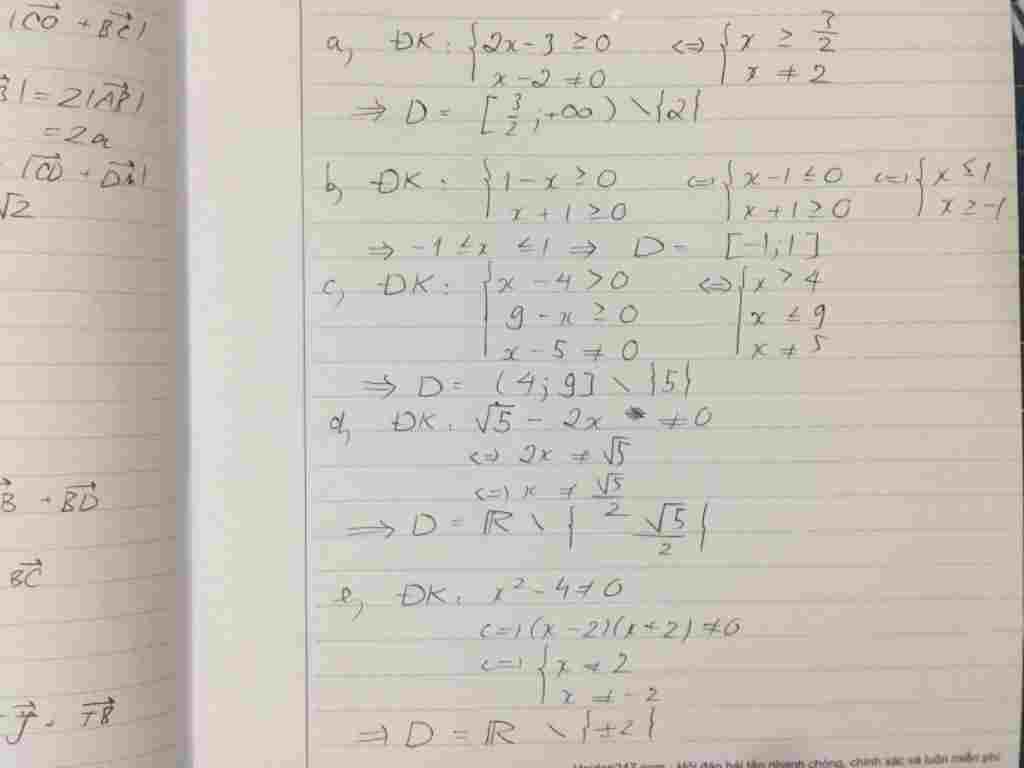 |CO⃗ + BC⃗|
| = 2|AB⃗|
= 2a
|CD⃗ + DA⃗|
√2
B⃗ + BD⃗
BC⃗
a, ĐK: { 2x - 3 ≥ 0 <=> { x ≥ 3/2
x - 2 ≠ 0 x ≠ 2
=> D = [3/2; +∞) \ {2}
b, ĐK: { 1 - x ≥ 0 <=> { x - 1 ≤ 0 <=> { x ≤ 1
x + 1 ≥ 0 x + 1 ≥ 0 x ≥ -1
=> -1 ≤ x ≤ 1 => D = [-1; 1]
c, ĐK: { x - 4 > 0 <=> { x > 4
9 - x ≥ 0 x ≤ 9
x - 5 ≠ 0 x ≠ 5
=> D = (4; 9] \ {5}
d, ĐK: √5 - 2x ≠ 0
<=> 2x ≠ √5
<=> x ≠ √5/2
=> D = ℝ \ { √5/2 }
e, ĐK: x² - 4 ≠ 0
<=> (x - 2)(x + 2) ≠ 0
<=> { x ≠ 2
x ≠ -2
=> D = ℝ \ {±2}
Hoidap247.com - Hỏi đáp bài tập nhanh chóng, chính xác và luôn miễn phí